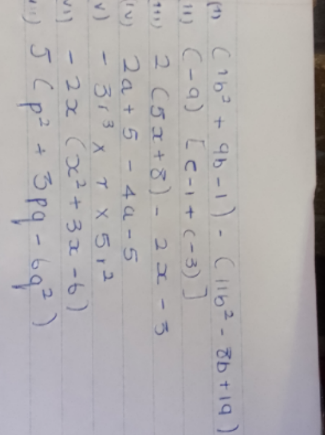 (i) (7b² + 9b - 1) - (11b² - 8b + 19)
(ii) (-9) [(-1 + (-3)]
(iii) 2 (5x + 8) - 2x - 3
(iv) 2a + 5 - 4a - 5
(v) - 3r³ × r × 5r²
(vi) - 2x (x² + 3x - 6)
5 (p² + 3pq - 6q²)